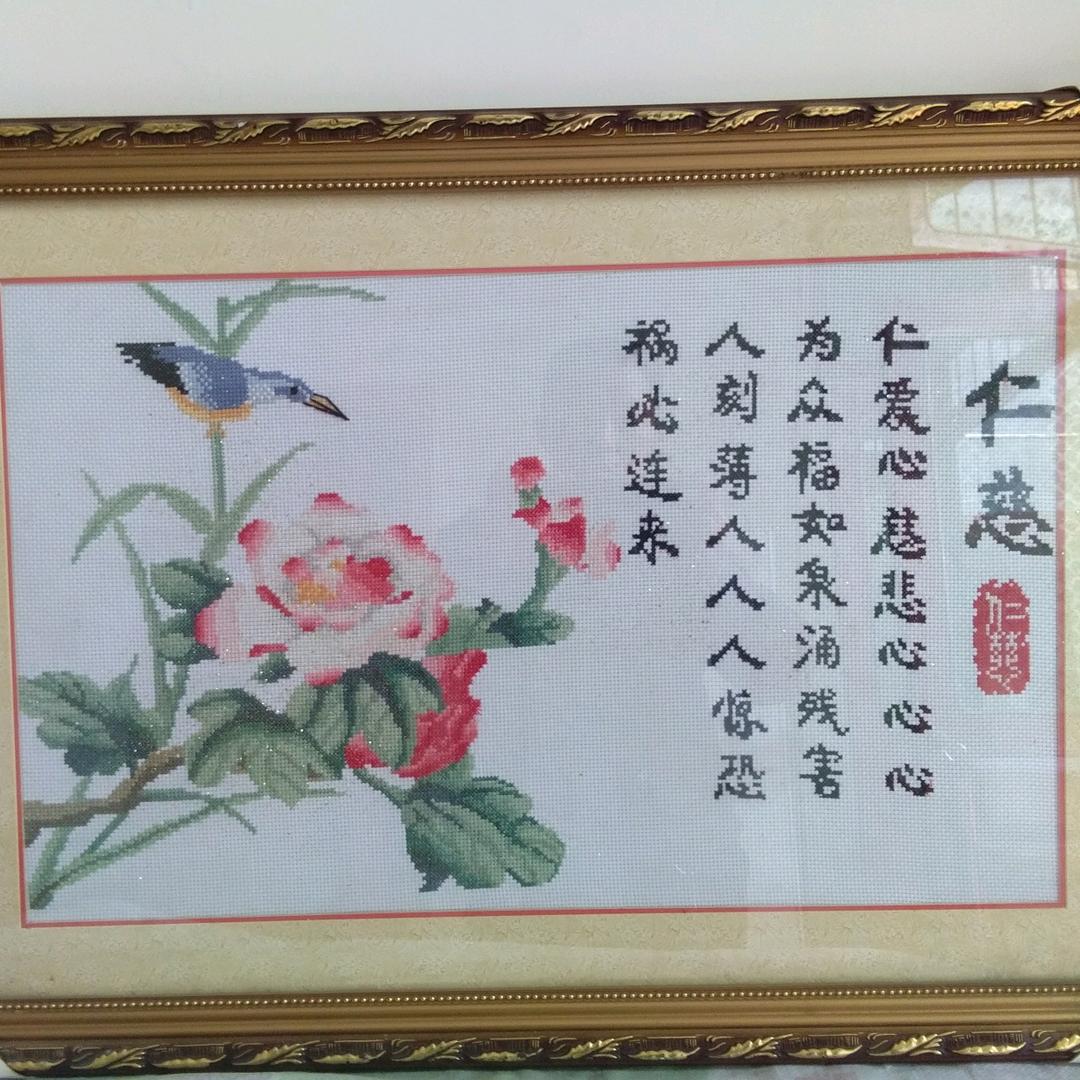 仁慈
仁爱心慈悲心心心
为众福如泉涌残害
人刻薄人人人惊恐
祸必连来